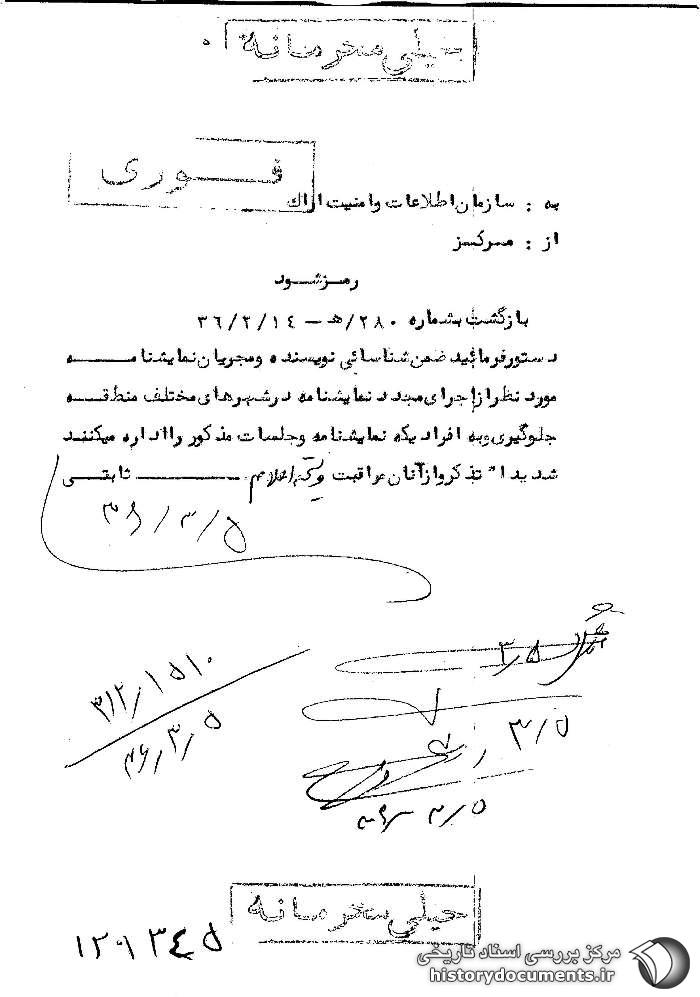 خیلی محرمانه
فــوری
به : سازمان اطلاعات وامنیت اراک
از : مرکز
رمز شود
بازگشت بشماره ۲۸۰/هـ – ۳۶/۲/۱٤
دستورفرمائید ضمن شناسائی نویسنده ومجریان نمایشنامه
مورد نظر از اجرای مجدد نمایشنامه درشهرهای مختلف منطقه
جلوگیری وبه افرادیکه نمایشنامه وجلسات مذکور را اداره میکنند
شدیدا" تذکر واز آنان مراقبت اعلام ثابتی
۳۶/۳/۵
۳/۵
۳۱۲/۱۵۱۰
۳۶/۳/۵
۳/۵
۳۶/۳/۵
خیلی محرمانه
۱۲۰۱۳٤۵
مرکز بررسی اسناد تاریخی
historydocuments.ir